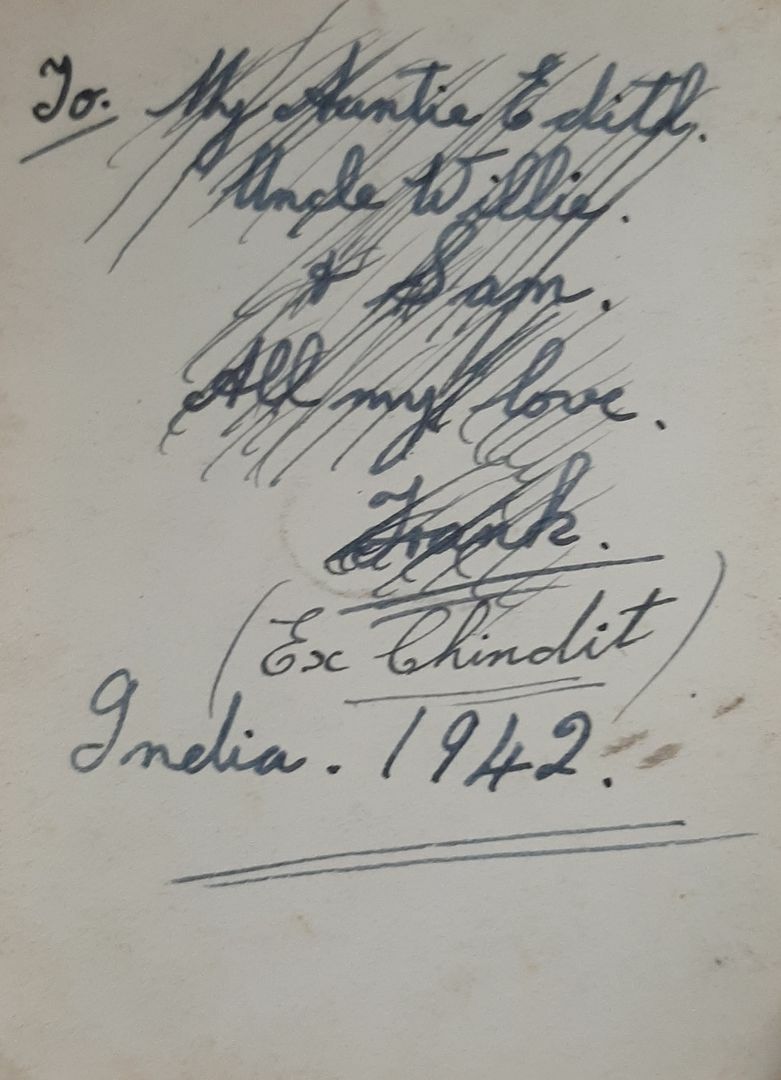 To. My Auntie Edith.
Uncle Willie.
& Sam.
All my love.
Frank.
(Ex Chindit)
India. 1942.